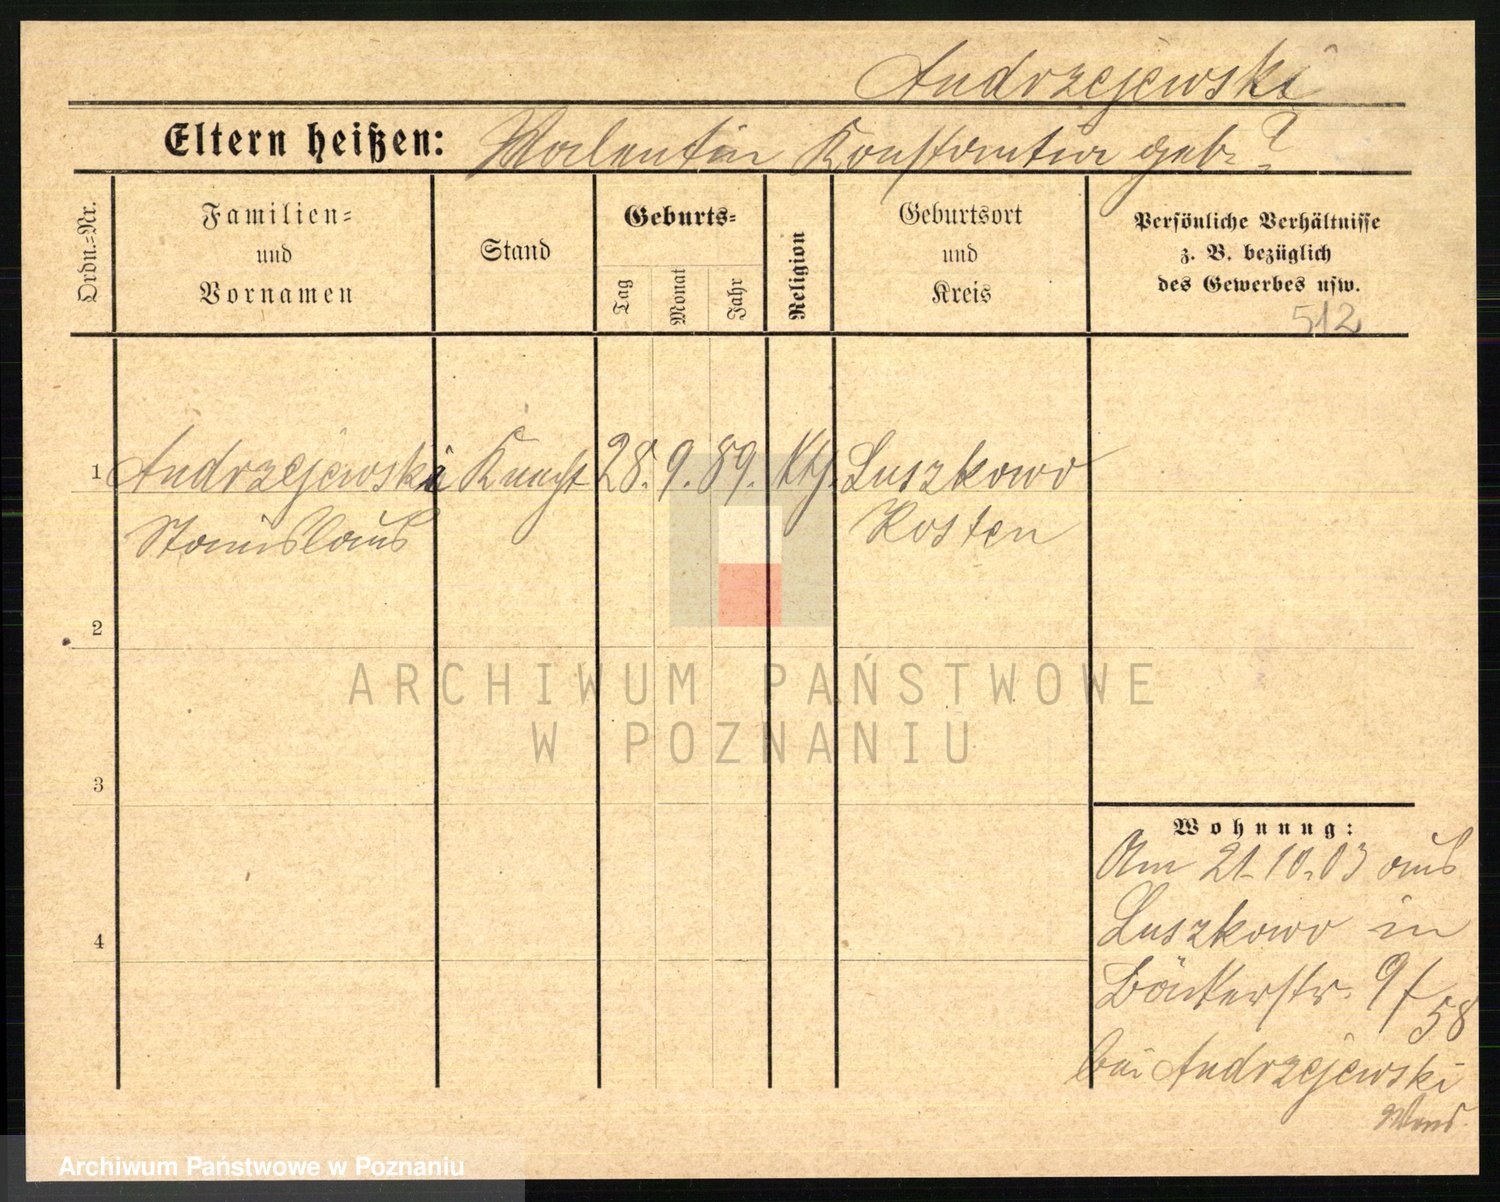 Andrzejewski
Eltern heißen: Valentin Konstantia geb. ?
Ordn.=Nr.
Familien=
und
Vornamen
Stand
Geburts=
Tag
Monat
Jahr
Religion
Geburtsort
und
Kreis
Persönliche Verhältnisse
z. B. bezüglich
des Gewerbes usw.
512
1 Andrzejewski Knecht 28. 9. 89. Kth. Luszkowo
Stanislaus Kosten
2
ARCHIWUM PAŃSTWOWE
W POZNANIU
3
Wohnung:
Am 21.10.03 aus
Luszkowo in
4
Bäckerstr. 9/58
bei Andrzejewski
Archiwum Państwowe w Poznaniu